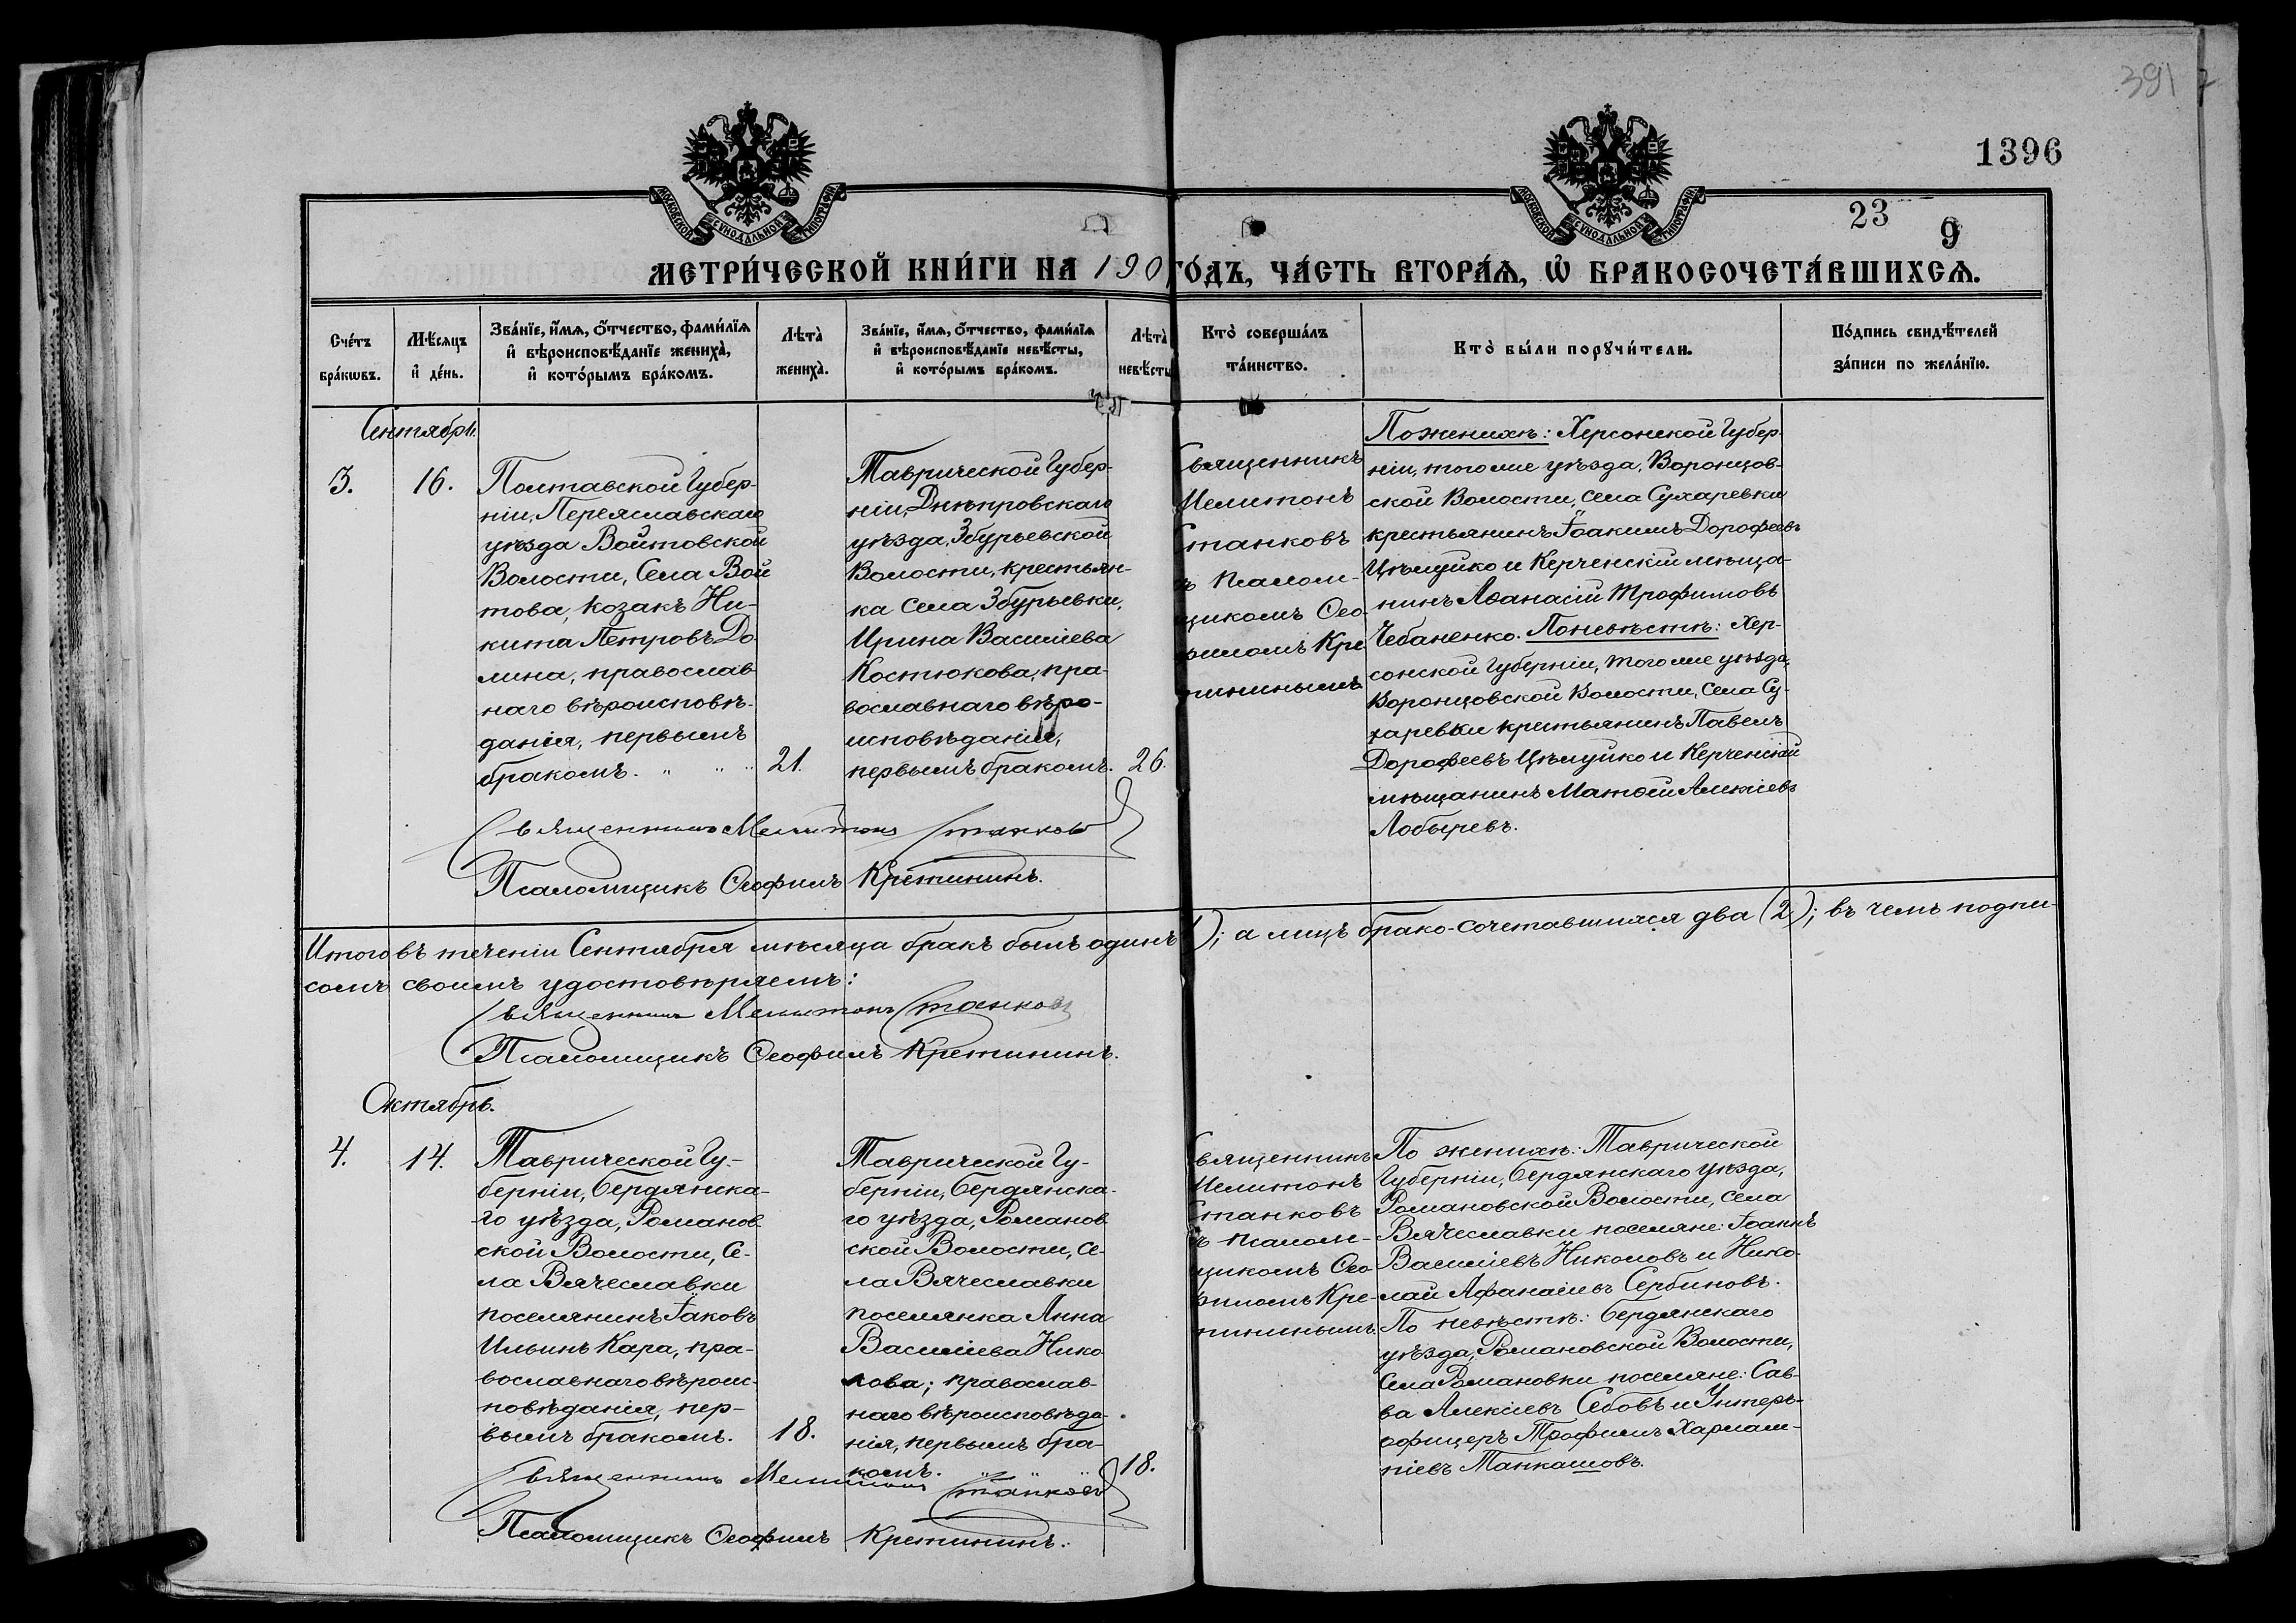 391
1396
МОСКОВСКОЙ СѴНОДАЛЬНОЙ ТИПОГРАФІИ
МОСКОВСКОЙ СѴНОДАЛЬНОЙ ТИПОГРАФІИ
23
9
МЕТРИ́ЧЕСКОЙ КНИ́ГИ НА 190 ГО́ДЪ, ЧА́СТЬ ВТОРА́Ѧ, Ѡ҆ БРАКОСОЧЕТА́ВШИХСѦ.
Сче́тъ
бра́кѡвъ.
Мѣ́сяцъ
и҆ де́нь.
Зва́нїе, и҆́мѧ, ѻ҆́тчество, фами́лїѧ
и҆ вѣроисповѣ́данїе жениха̀,
и҆ кото́рымъ бра́комъ.
Лѣта̀
жениха̀.
Зва́нїе, и҆́мѧ, ѻ҆́тчество, фами́лїѧ
и҆ вѣроисповѣ́данїе невѣ́сты,
и҆ кото́рымъ бра́комъ.
Лѣта̀
невѣ́сты
Кто̀ соверша́лъ
та́инство.
Кто̀ бы́ли порꙋчи́тели.
По́дпись свидѣ́телей
за́писи по жела́нїю.
Сентябрь.
3.
16.
Полтавской Губер-
ніи, Переяславскаго
уѣзда Войтовской
Волости, Села Вой
това, козакъ Ни-
кита Петровъ До
лина, православ
наго вѣроисповѣ-
данія, первымъ
бракомъ. " " "
21.
Таврической Губер-
ніи, Днѣпровскаго
уѣзда, Збурьевской
Волости, крестьян-
ка села Збурьевки,
Ирина Василіева
Костюкова, пра-
вославнаго вѣро-
исповѣданія,
первымъ бракомъ.
26.
Священникъ
Мелитонъ
Станковъ
съ псалом-
щикомъ Ѳео-
филомъ Кре
тининымъ
По женихѣ: Херсонской Губер-
ніи, того же уѣзда, Воронцов-
ской Волости, села Сухаревки
крестьянинъ Іоакимъ Дорофеевъ
Цѣлуйко и Керченскій мѣща-
нинъ Аѳанасій Трофимовъ
Чебаненко. По невѣстѣ: Хер-
сонской Губерніи, того же уѣзда,
Воронцовской Волости, села Су-
харевки крестьянинъ Павелъ
Дорофеевъ Цѣлуйко и Керченскій
мѣщанинъ Матѳій Алексіевъ
Лобыревъ.
Священникъ Мелитонъ Станковъ
Псаломщикъ Ѳеофилъ Кретининъ.
Итого въ теченіи Сентября мѣсяца бракъ былъ одинъ 1); а лицъ брако-сочетавшихся два (2); въ чемъ подпи-
сомъ своимъ удостовѣряемъ:
Священникъ Мелитонъ Станковъ
Псаломщикъ Ѳеофилъ Кретининъ.
Октябрь.
4.
14.
Таврической Гу-
берніи, Бердянска-
го уѣзда, Романов
ской Волости, Се-
ла Вячеславки
поселянинъ Іаковъ
Ильинъ Кара, пра-
вославнаго вѣроис-
повѣданія, пер-
вымъ бракомъ.
18.
Таврической Гу-
берніи, Бердянска-
го уѣзда, Романов
ской Волости, се-
ла Вячеславки
поселянка Анна
Василіева Нико
лова; православ-
наго вѣроисповѣда-
нія, первымъ бра-
комъ. " " "
18.
Священникъ
Мелитонъ
Станковъ
съ псалом-
щикомъ Ѳео-
филомъ Кре-
тининымъ.
По женихѣ: Таврической
Губерніи, Бердянскаго уѣзда,
Романовской Волости, села
Вячеславки поселяне: Іоаннъ
Василіевъ Николовъ и Нико-
лай Афанасіевъ Сербиновъ.
По невѣстѣ: Бердянскаго
уѣзда, Романовской Волости,
Села Романовки поселяне: Сав-
ва Алексіевъ Себовъ и Унтеръ-
офицеръ Трофимъ Харлам-
піевъ Танкашовъ.
Священникъ Мелитонъ Станковъ
Псаломщикъ Ѳеофилъ Кретининъ.